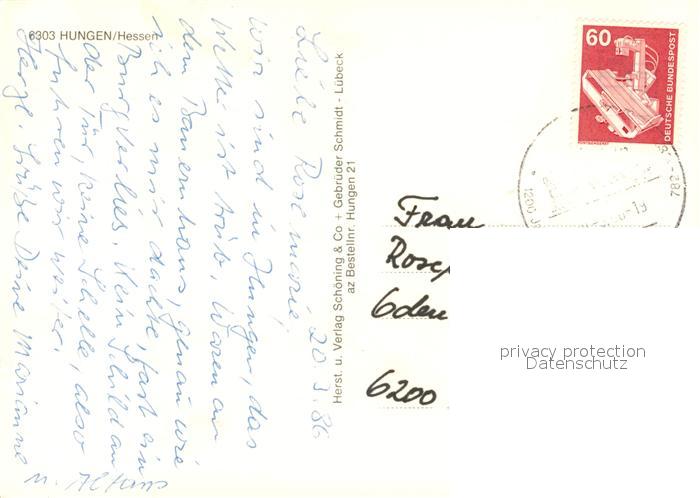 6303 HUNGEN/Hessen
20.3.86
Liebe Rosemarie.
Wir sind in Hungen, das
Wetter ist trüb. Waren an
dem Bauernhaus, genau wie
ich es mir dachte, fast ein
Burgverlies. Kein Schild an
der Tür, keine Schelle, also
fuhren wir weiter.
Herzl. Grüße Deine Marianne
u. Alfons
Herst. u. Verlag Schöning & Co + Gebrüder Schmidt - Lübeck
az Bestellnr. Hungen 21
60
DEUTSCHE BUNDESPOST
Frau
6200
privacy protection
Datenschutz